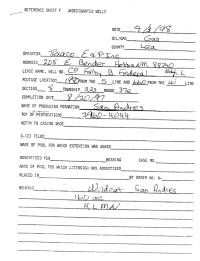 REFERENCE SHEET F UNDESIGNATED WELLS
DATE 9/3/98
OIL/GAS Gas
COUNTY Lea
OPERATOR Texaco E & P Inc
ADDRESS 205 E Bender Hobbs NM 88240
LEASE NAME, WELL NO. CP Falby B Federal L
FOOTAGE LOCATION 1980 FROM THE S LINE AND 660 FROM THE W LINE
SECTION 8 TOWNSHIP 22S RANGE 37E
COMPLETION DATE 8/20/97
NAME OF PRODUCING FORMATION San Andres
TOP OF PERFORATIONS 3960-4044
DEPTH TO CASING SHOE
C-123 FILED
NAME OF POOL FOR WHICH EXTENSION WAS ASKED
ADVERTISED FOR HEARING CASE NO.
NAME OF POOL FOR WHICH EXTENSION WAS ADVERTISED
PLACED IN BY ORDER NO. R-
Wildcat San Andres
160 ac
K L M N